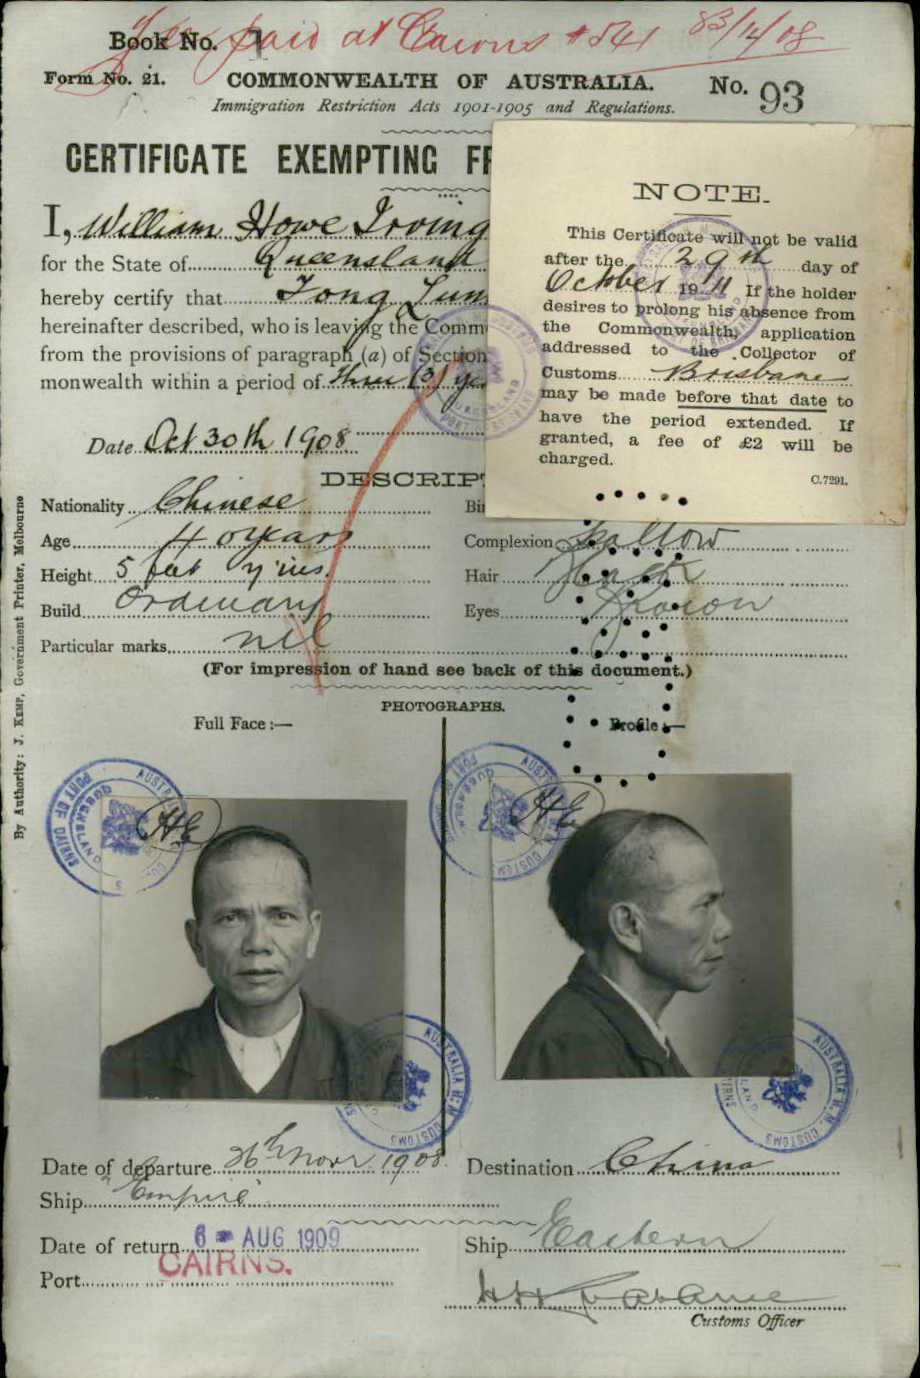 Book No. 1
Fee paid at Cairns #541 83/14/08
Form No. 21.
COMMONWEALTH OF AUSTRALIA.
No. 93
Immigration Restriction Acts 1901-1905 and Regulations.
CERTIFICATE EXEMPTING F
I, William Howe Irving
for the State of Queensland
hereby certify that Tong Lum
hereinafter described, who is leaving the Comm
from the provisions of paragraph (a) of Section
monwealth within a period of three (3) ye
Date Oct 30th 1908
NOTE.
This Certificate will not be valid
after the 29th day of
October 1911 If the holder
desires to prolong his absence from
the Commonwealth, application
addressed to the Collector of
Customs Brisbane
may be made before that date to
have the period extended. If
granted, a fee of £2 will be
charged.
C.7291.
DESCRIPT
Nationality Chinese
Bi
Age 40 years
Complexion Sallow
Height 5 feet 7 ins.
Hair Black
Build Ordinary
Eyes Brown
Particular marks nil
(For impression of hand see back of this document.)
PHOTOGRAPHS.
Full Face:—
Profile:—
By Authority: J. KEMP, Government Printer, Melbourne
AUSTRALIA H.M. CUSTOMS
PORT OF CAIRNS
QUEENSLAND
HE
HE
AUSTRALIA H.M. CUSTOMS
AUSTRALIA H.M. CUSTOMS
Date of departure 26th Novr 1908
Destination China
Ship "Empire"
Date of return 6 - AUG 1909
Ship Eastern
Port CAIRNS.
Customs Officer